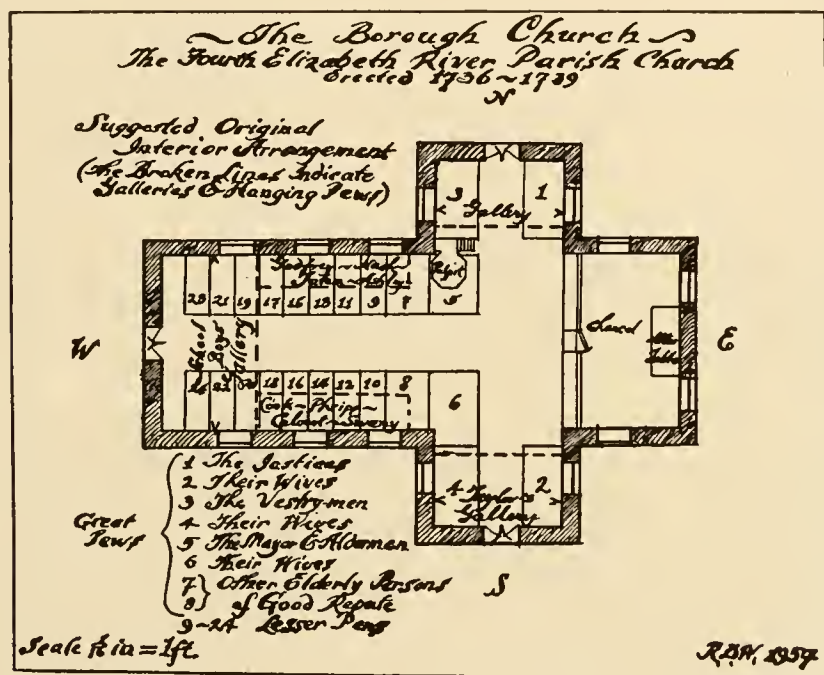 The Borough Church
The Fourth Elizabeth River Parish Church
Erected 1736~1739
N
Suggested Original
Interior Arrangement
(The Broken Lines Indicate
Galleries & Hanging Pews)
3 1
Gallery
Godfrey ~ Nash
Pulpit
23 21 19 17 15 13 11 9 7 5
W
School
Boys
Gallery
Chancel
Altar
Table
E
24 22 20 18 16 14 12 10 8 6
Cook ~ Phripp ~
Calvert ~ Sweny
4 Taylor's 2
Gallery
Great
Pews
1 The Justices
2 Their Wives
3 The Vestrymen
4 Their Wives
5 The Mayor & Aldermen
6 Their Wives
7 } Other Elderly Persons
8 } of Good Repute
9~24 Lesser Pews
S
Scale 1/16 in = 1 ft.
1957